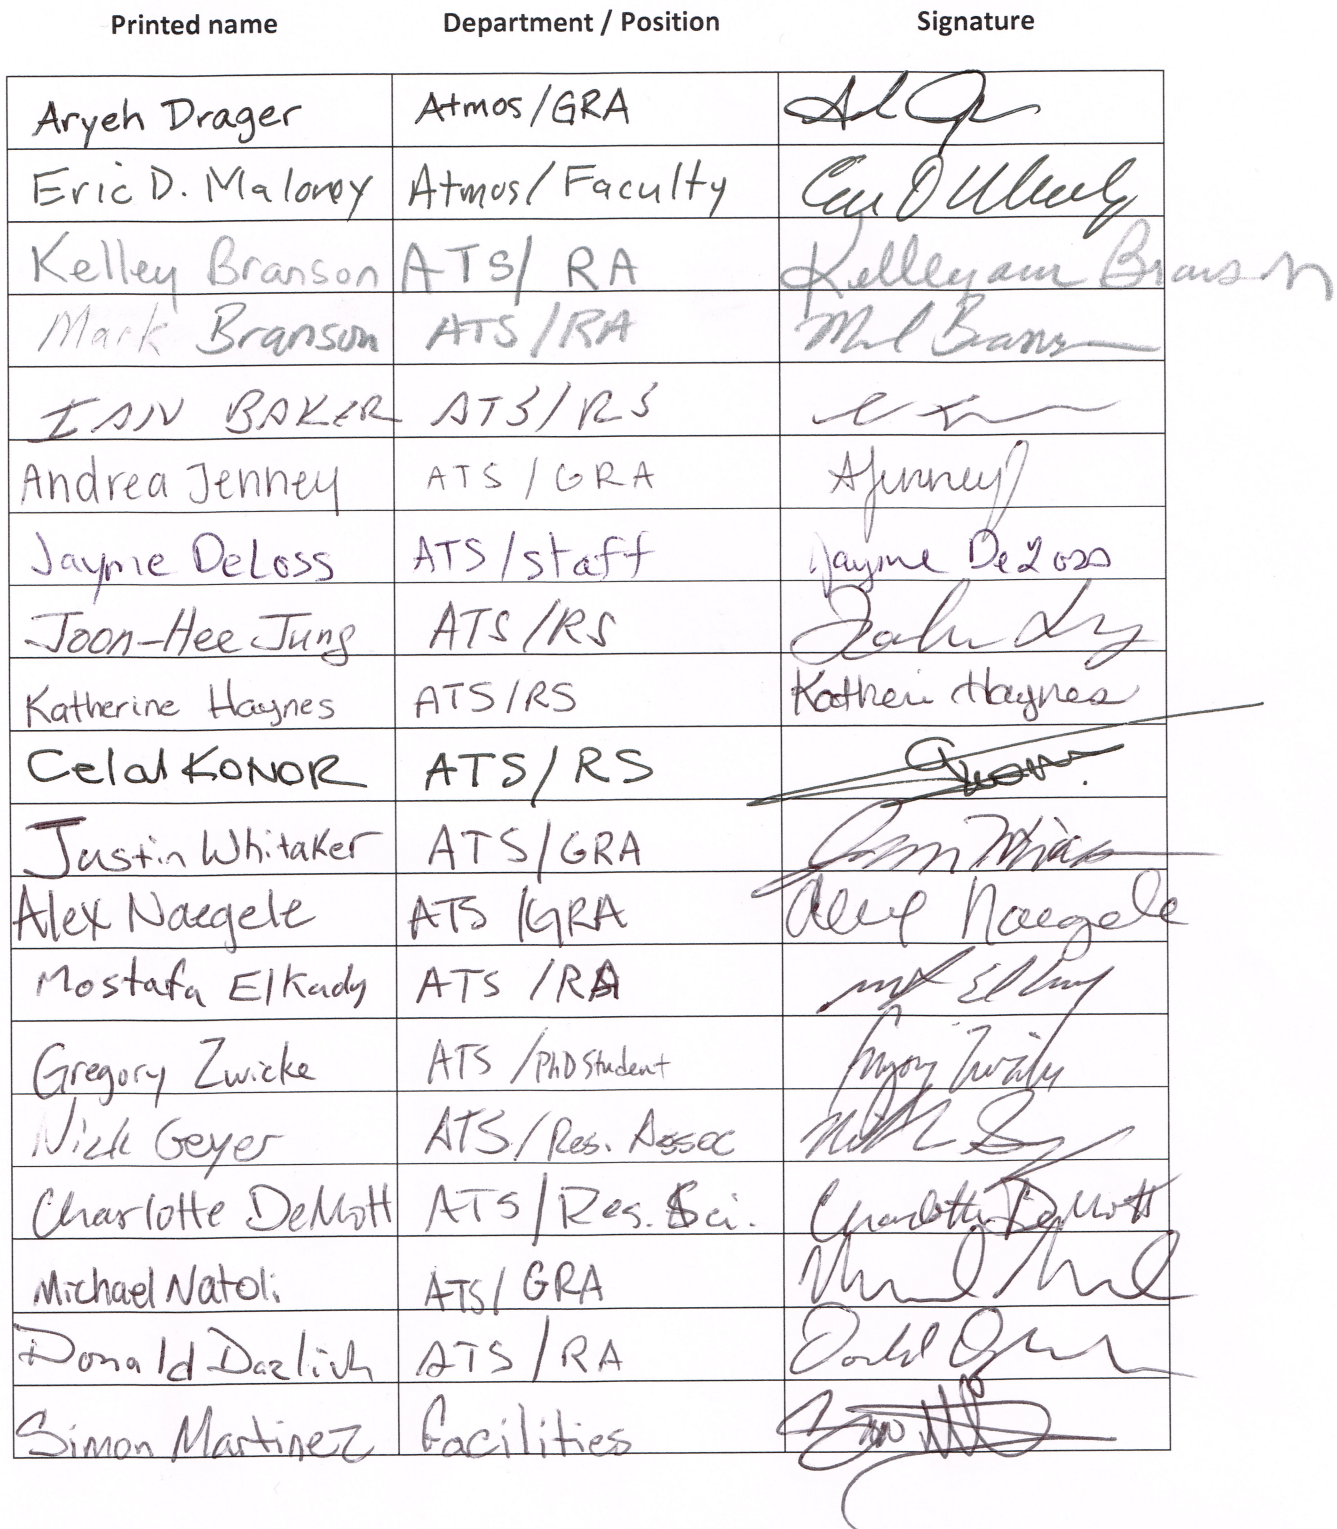 Printed name Department / Position Signature
Aryeh Drager Atmos/GRA
Eric D. Maloney Atmos/Faculty
Kelley Branson ATS/ RA Kelleyann Branson
Mark Branson ATS/RA
IAN BAKER ATS/RS
Andrea Jenney ATS/GRA AJenney
Jayme DeLoss ATS/staff Jayme DeLoss
Joon-Hee Jung ATS/RS
Katherine Haynes ATS/RS Katheri Haynes
Celal KONOR ATS/RS
Justin Whitaker ATS/GRA
Alex Naegele ATS/GRA Alex Naegele
Mostafa Elkady ATS/RA
Gregory Zwicke ATS/PhD Student
Nick Geyer ATS/Res. Assoc
Charlotte DeMott ATS/Res. Sci. Charlotte DeMott
Michael Natoli ATS/ GRA
Donald Dazlich ATS/RA
Simon Martinez facilities